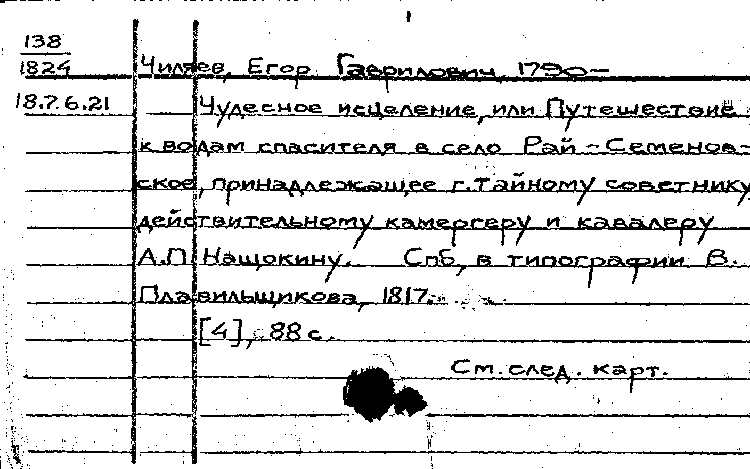 138
1824 Чиляев, Егор Гаврилович, 1790–
18.7.6.21 Чудесное исцеление, или Путешествие
к водам спасителя в село Рай-Семенов-
ское, принадлежащее г. тайному советнику,
действительному камергеру и кавалеру
А.П. Нащокину. Спб, в типографии В.
Плавильщикова, 1817.
[4], 88 с.
См. след. карт.